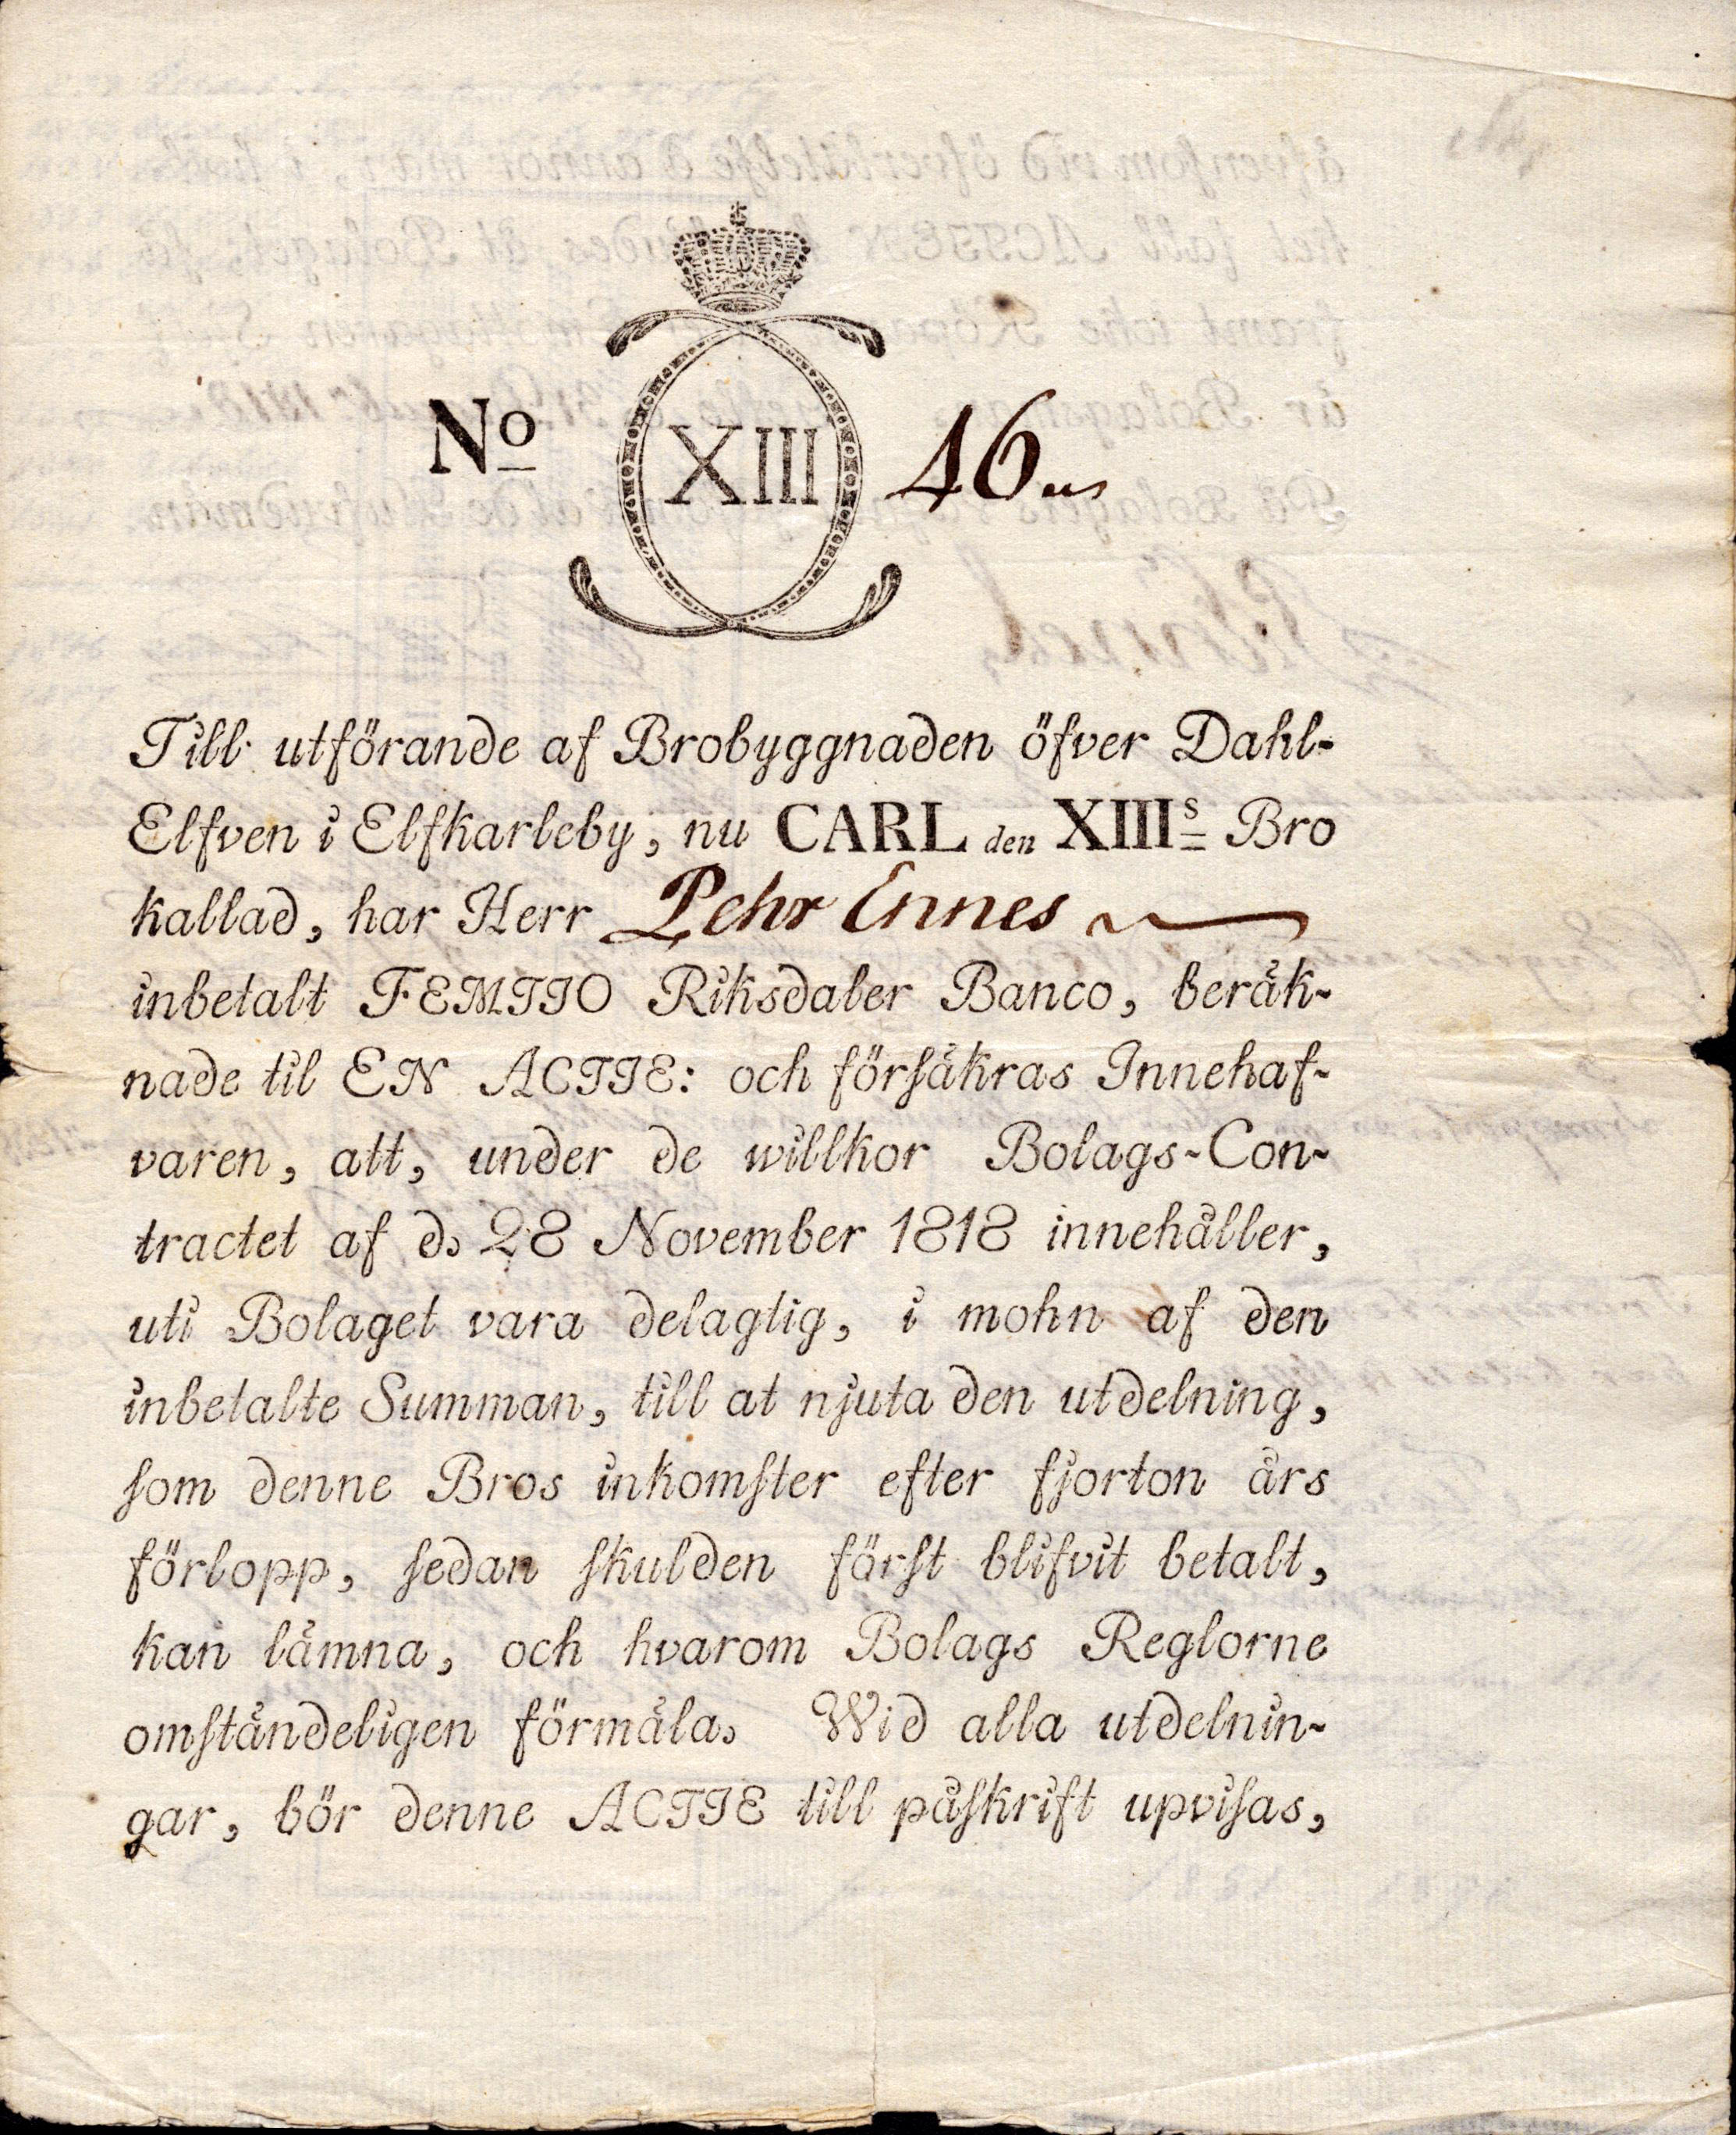 No XIII 46
Till utförande af Brobyggnaden öfver Dahl-
Elfven i Elfkarleby, nu CARL den XIIIs Bro
kallad, har Herr Pehr Ennes
inbetalt FEMTIO Riksdaler Banco, beräk-
nade til EN ACTIE: och förſäkras Innehaf-
varen, att, under de willkor Bolags-Con-
tractet af d. 28 November 1818 innehåller,
uti Bolaget vara delagtig, i mohn af den
inbetalte Summan, till at njuta den utdelning,
ſom denne Bros inkomſter efter fjorton års
förlopp, ſedan ſkulden förſt blifvit betalt,
kan lämna, och hvarom Bolags Reglorne
omſtändeligen förmäla. Wid alla utdelnin-
gar, bör denne ACTIE till påſkrift upviſas,